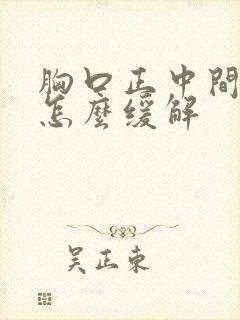 胸口正中間
怎麼緩解
吴正東